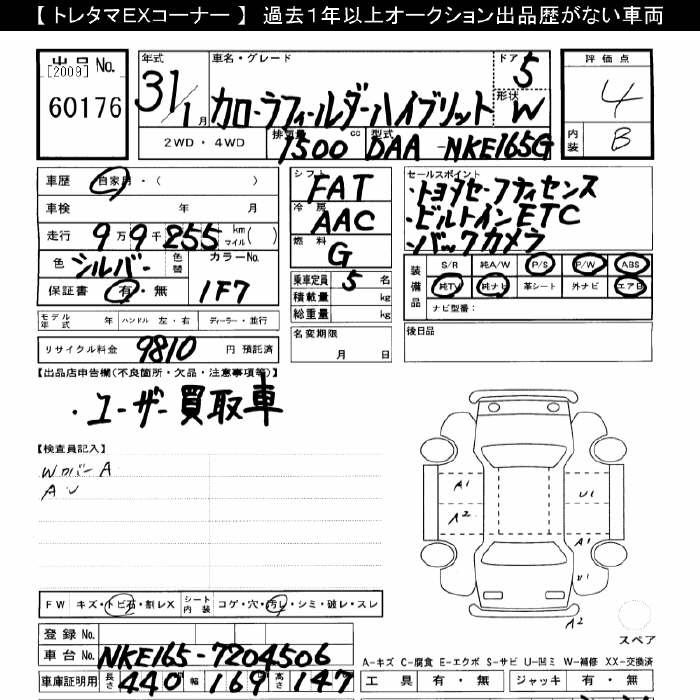 【 トレタマEXコーナー 】 過去1年以上オークション出品歴がない車両
出品 No.
[2009]
60176
年式
31/1月
車名・グレード
カローラフィールダーハイブリット
ドア
5
形状
W
2WD ・ 4WD
排気量
1500 cc
型式
DAA - NKE165G
評価点
4
内装
B
車歴 自家用 ・ ( )
車検 年 月
走行 9万9千255 km マイル ( )
色 シルバー 色替 カラーNo.
保証書 有・無 1F7
シフト
FAT
冷房
AAC
燃料
G
乗車定員 5 名
積載量 kg
総重量 kg
セールスポイント
・トヨタセーフティセンス
・ビルトインETC
・バックカメラ
装備品
S/R 純A/W P/S P/W ABS
純TV 純ナビ 革シート 外ナビ エアB
ナビ型番:
モデル年式 年 ハンドル 左・右 ディーラー・並行
リサイクル料金 9810 円 預託済
名変期限
月 日
後日品
【出品店申告欄(不良箇所・欠品・注意事項等)】
・ユーザー買取車
【検査員記入】
Wカバー A
A U
A1
U1
A2
A1
U1
A2
スペア
FW キズ・トビ石・割レX シート内装 コゲ・穴・汚レ・シミ・破レ・スレ
登録 No.
車台 No. NKE165-7204506
車庫証明用 長さ 440 幅 169 高さ 147
A-キズ C-腐食 E-エクボ S-サビ U-凹ミ W-補修 XX-交換済
工具 有・無 ジャッキ 有・無